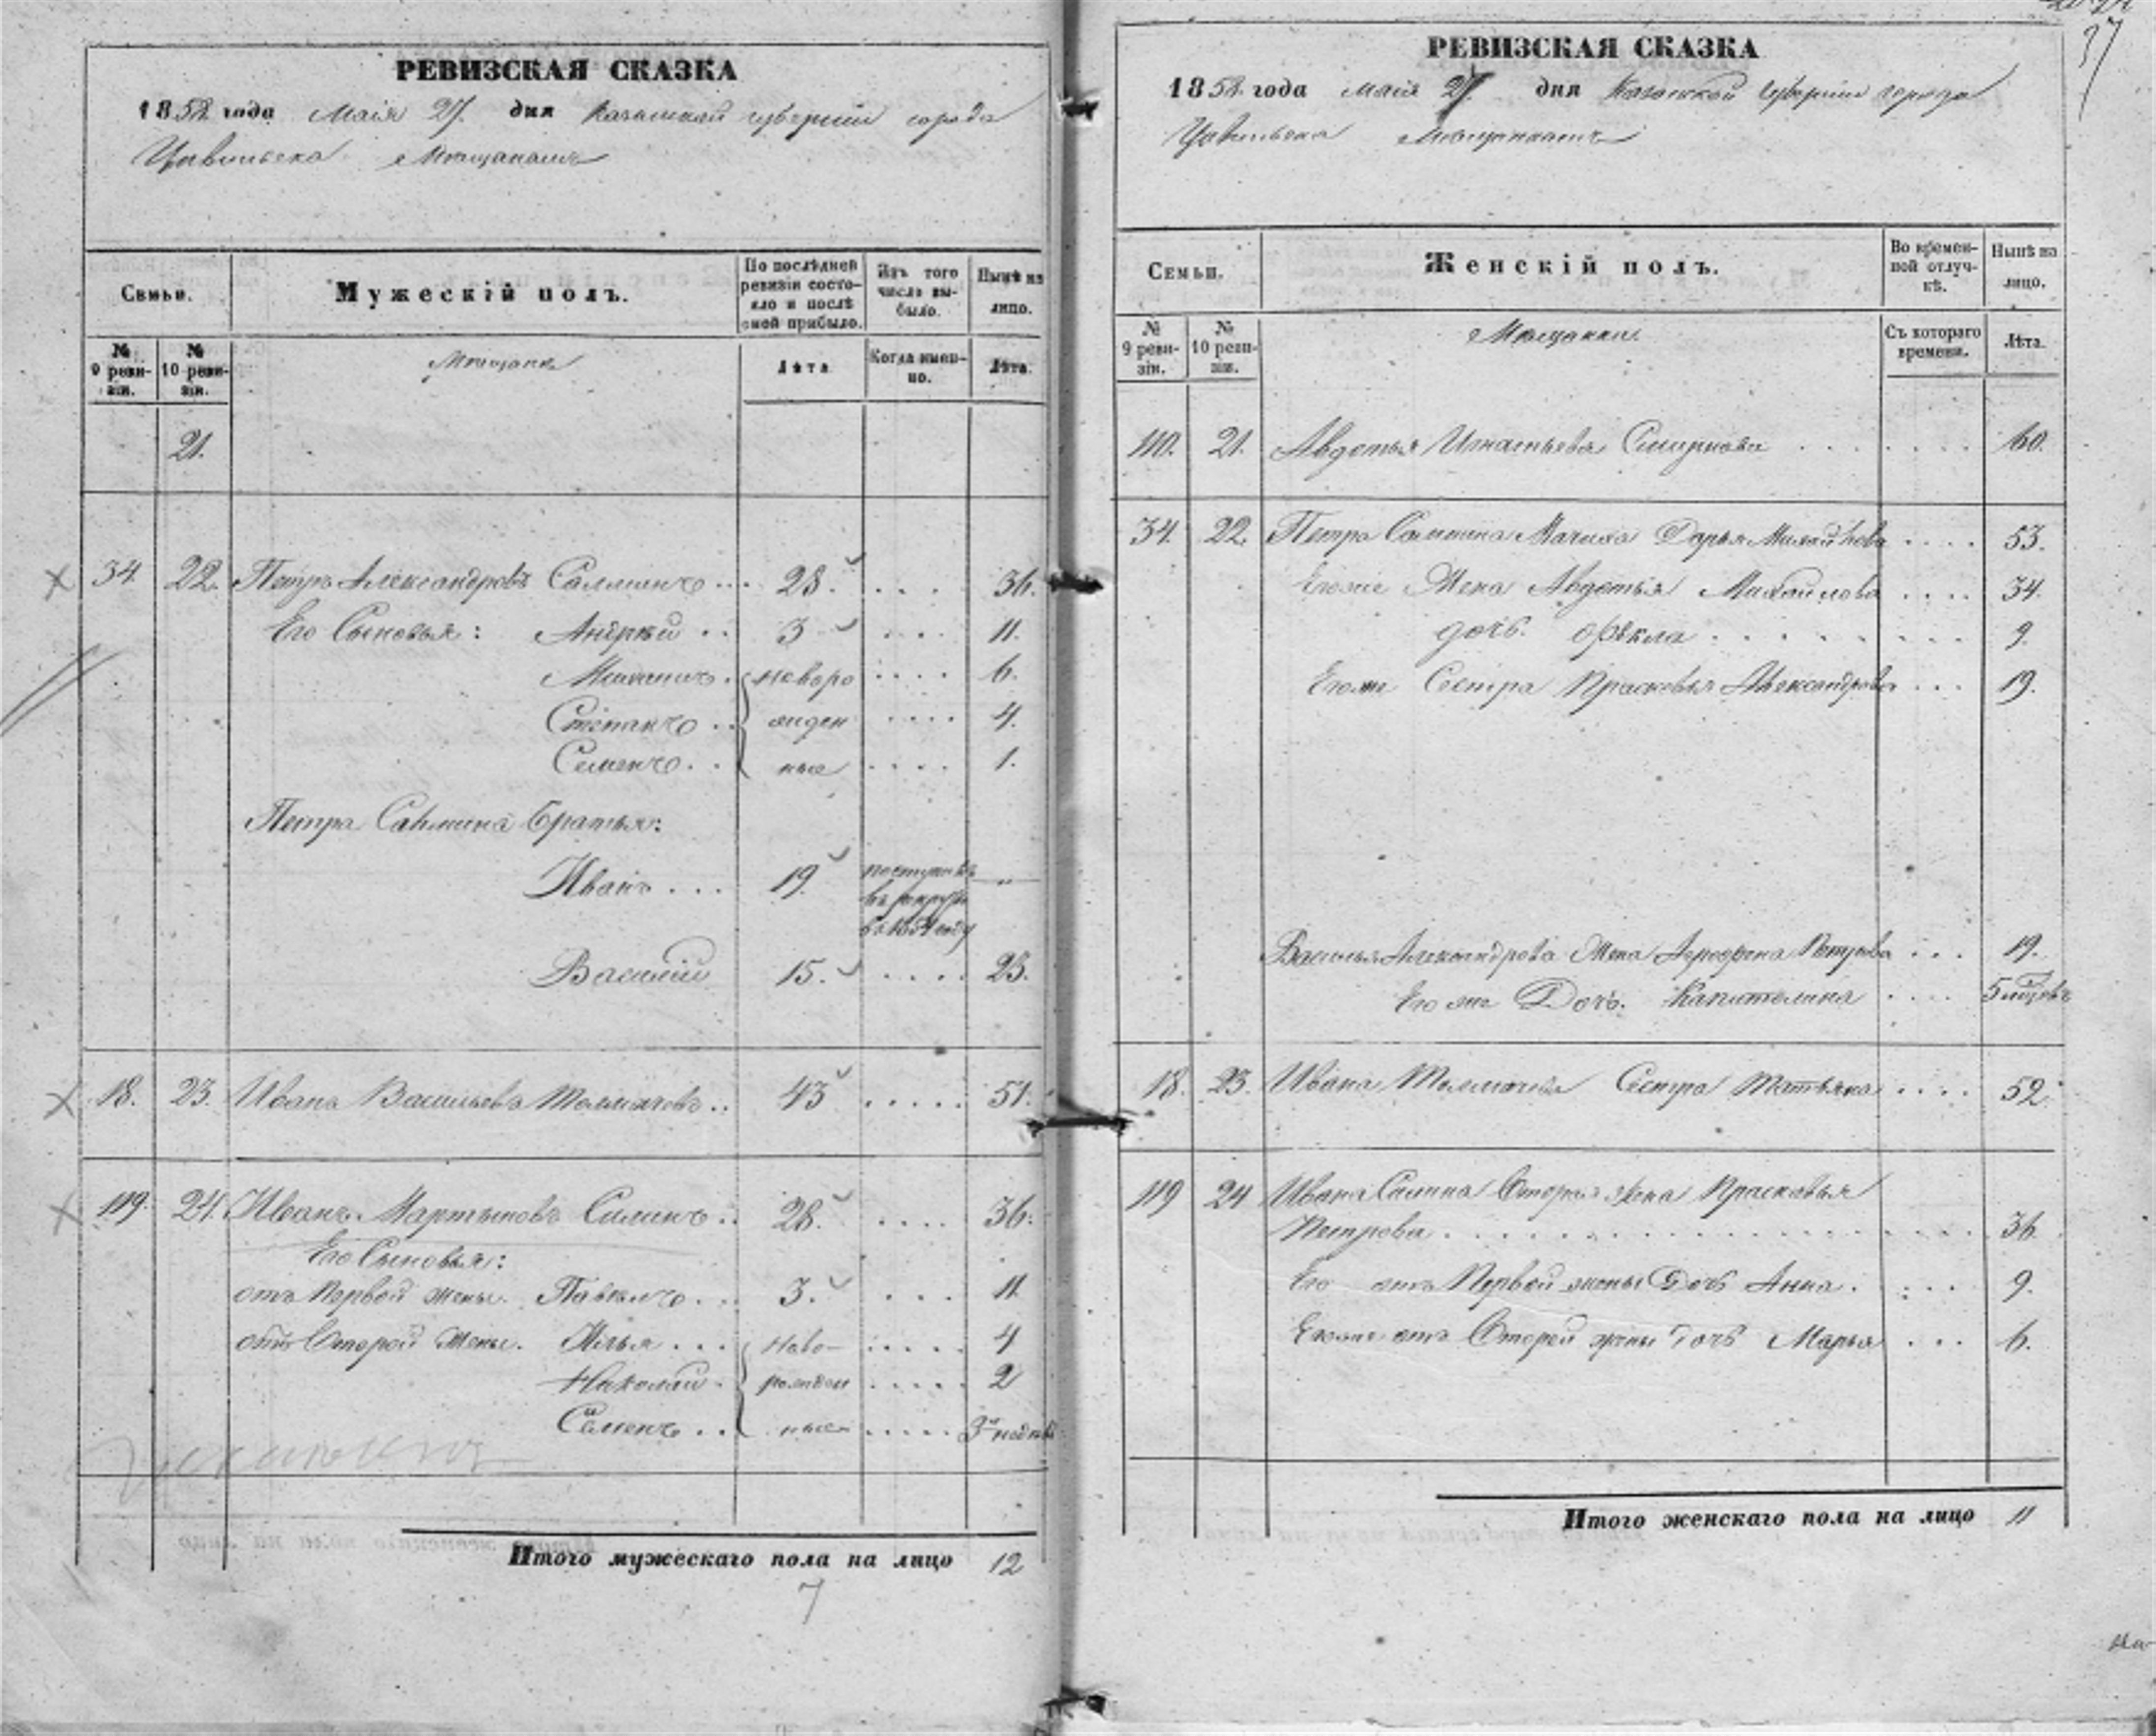 РЕВИЗСКАЯ СКАЗКА
1858 года Маія 27. дня Казанской губерніи города
Цивильска Мѣщанамъ
Семьи.
Мужескій полъ.
По послѣдней ревизіи состояло и послѣ оной прибыло.
Изъ того числа выбыло.
Нынѣ на лицо.
№ 9 ревизіи.
№ 10 ревизіи.
Мѣщане
Лѣта
Когда именно.
Лѣта.
21.
34. 22. Петръ Александровъ 28. 36.
Его Сыновья: Андрей 3 11.
новоро 6.
Степанъ жден 4.
Семенъ ные 1.
Петра братья:
Иванъ 19. поступилъ
въ рекруты
Василій 15. 23.
18. 23. Ивана Васильева 43 51.
119. 24. Иванъ Мартыновъ 28. 36.
Его Сыновья:
отъ Первой жены. Павелъ 3. 11.
отъ Второй жены. Илья Ново- 4
Николай рожден 2
Семенъ ные 3 недѣль
Итого мужескаго пола на лицо 12
7
37
РЕВИЗСКАЯ СКАЗКА
1858 года Маія 27. дня Казанской губерніи города
Цивильска Мѣщанамъ
Семьи.
Женскій полъ.
Во временной отлучкѣ.
Нынѣ на лицо.
№ 9 ревизіи.
№ 10 ревизіи.
Мѣщанки.
Съ котораго времени.
Лѣта.
110. 21. Авдотья Игнатьева Смирнова 60.
34. 22. Петра Мачиха Дарья 53.
Егоже Жена Авдотья Михайлова 34.
дочь. Ѳекла 9.
Егоже Сестра Прасковья Александрова 19.
Василья Александрова Жена Агрофена Петрова 19.
Его же Дочь. Капитолина 5 мѣсяцовъ
18. 23. Ивана Сестра Татьяна 52.
119 24 Ивана Вторая жена Прасковья
Петрова 36.
Его отъ Первой жены Дочь Анна. 9.
Егоже отъ Второй жены Дочь Марья 6.
Итого женскаго пола на лицо 11